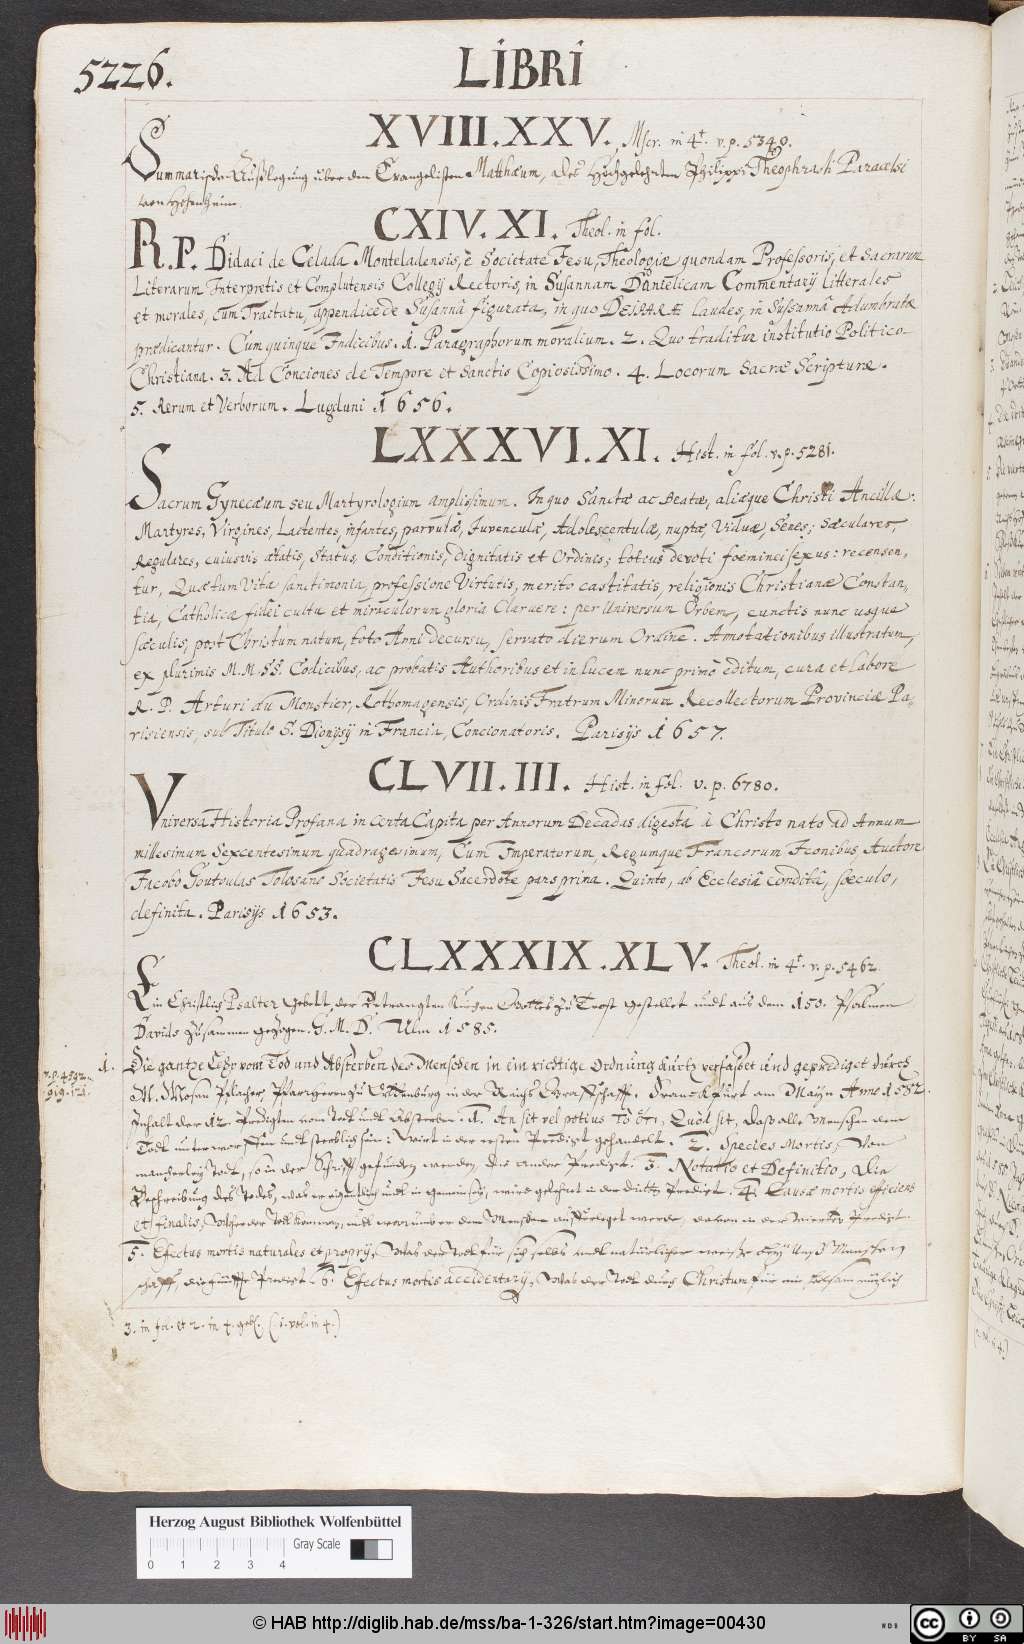 5226.
LIBRI
XVIII.XXV. Mscr. in 4t. v.p. 5340.
Summarische Außlegung über den Evangelisten Matthæum, des Hochgelehrten Philippi Theophrasti Paracelsi
von Hohenheim.
CXIV.XI. Theol. in fol.
R.P. Didaci de Celada Monteladensis, è Societate Jesu, Theologiæ quondam Professoris, et Sacrarum
Literarum Interpretis et Complutensis Collegij Rectoris, in Susannam Danielicam Commentarij litterales
et morales, cum Tractatu, appendice de Susannâ figurata, in quo DEIPARÆ laudes, in Susannâ Adumbratæ
prædicantur. Cum quinque Indicibus. 1. Paragraphorum moralium. 2. Quo traditur institutio Politico-
Christiana. 3. Ad Conciones de Tempore et Sanctis Copiosissimo. 4. Locorum Sacræ Scripturæ.
5. Rerum et Verborum. Lugduni 1656.
LXXXVI.XI. Hist. in fol. v.p. 5281.
Sacrum Gynecæum seu Martyrologium amplissimum. In quo Sanctæ ac Beatæ, aliæque Christi Ancillæ:
Martyres, Virgines, Lactentes, infantes, parvulæ, Juvenculæ, Adolescentulæ, nuptæ, Viduæ, Senes; Sæculares,
Regulares, cuiusvis ætatis, Status, Conditionis, dignitatis et Ordinis; totius devoti foeminei sexus: recensen,
tur, Quæ tum Vitæ sanctimonia, professione Virtutis, merito castitatis, religionis Christianæ Constan,
tia, Catholicæ fidei cultu et miraculorum gloria Claruere: per Universum Orbem, cunctis nunc usque
sæculis, post Christum natum, toto Anni decursu, servato dierum Ordine. Annotationibus illustratum,
ex plurimis M.M.SS. Codicibus, ac probatis Authoribus et in lucem nunc primò editum, cura et labore
R.P. Arturi du Monstier, Rothomagensis, Ordinis Fratrum Minorum Recollectorum Provinciæ Pa-
risiensis, sub Titulo S. Dionysij in Francia, Concionatoris. Parisijs 1657.
CLVII.III. Hist. in fol. v.p. 6780.
Universa Historia Profana in Certa Capita per Annorum Decadas digesta à Christo nato ad Annum
millesimum Sexcentesimum quadragesimum, Cum Imperatorum, Regumque Francorum Iconibus Auctore
Jacobo Goutoulas Tolosano Societatis Jesu Sacerdote pars prima. Quinto, ab Ecclesiâ conditâ, sæculo,
definita. Parisijs 1653.
CLXXXIX.XLV. Theol. in 4t. v.p. 5462.
Ein Christlich Psalter Gebett, der Betrangten Kirchen Gottes zu Trost gestellet undt aus dem 150. Psalmen
Davids zusammen gezogen. G. M. D. Ulm 1585.
v.p. 4892.
1. Die gantze Lehr vom Tod und Absterben des Menschen in ein richtige Ordnung kürtz verfasset und geprediget durch
M. Pfarrherren zu in der Reichs Graffschafft. Franckfurt am Mayn Anno 1582.
Inhalt der 12. Predigten vom Todt undt Absterben. 1. An sit vel potius τὸ ὅτι, Quòd sit, daß alle Menschen dem
Todt unterworffen undt sterblich sein: wirt in der ersten Predigt gehandelt. 2. Species Mortis, Von
mancherley Todt, so in der Schrifft gefunden werden, die ander Predigt. 3. Notatio et Definitio, Ein
Beschreibung des Todes, was er eigentlich undt in gemein sey, wird gelehret in der dritten Predigt. 4. Causæ mortis efficiens
et finalis, Woher der Todt komme, undt warumb er dem Menschen aufferleget werde, davon in der vierten Predigt.
5. Effectus mortis naturales et proprij, Was der Todt für sich selbs undt natürlicher weiße bey Uns Menschen
schafft, die fünffte Predigt. 6. Effectus mortis accidentarij, Was der Todt durch Christum für ein heilsam nützlich
3. in fol. et 2. in 4. geb. (1. vol. in 4.)
Herzog August Bibliothek Wolfenbüttel
Gray Scale
0 1 2 3 4
© HAB http://diglib.hab.de/mss/ba-1-326/start.htm?image=00430
WDB
cc BY SA